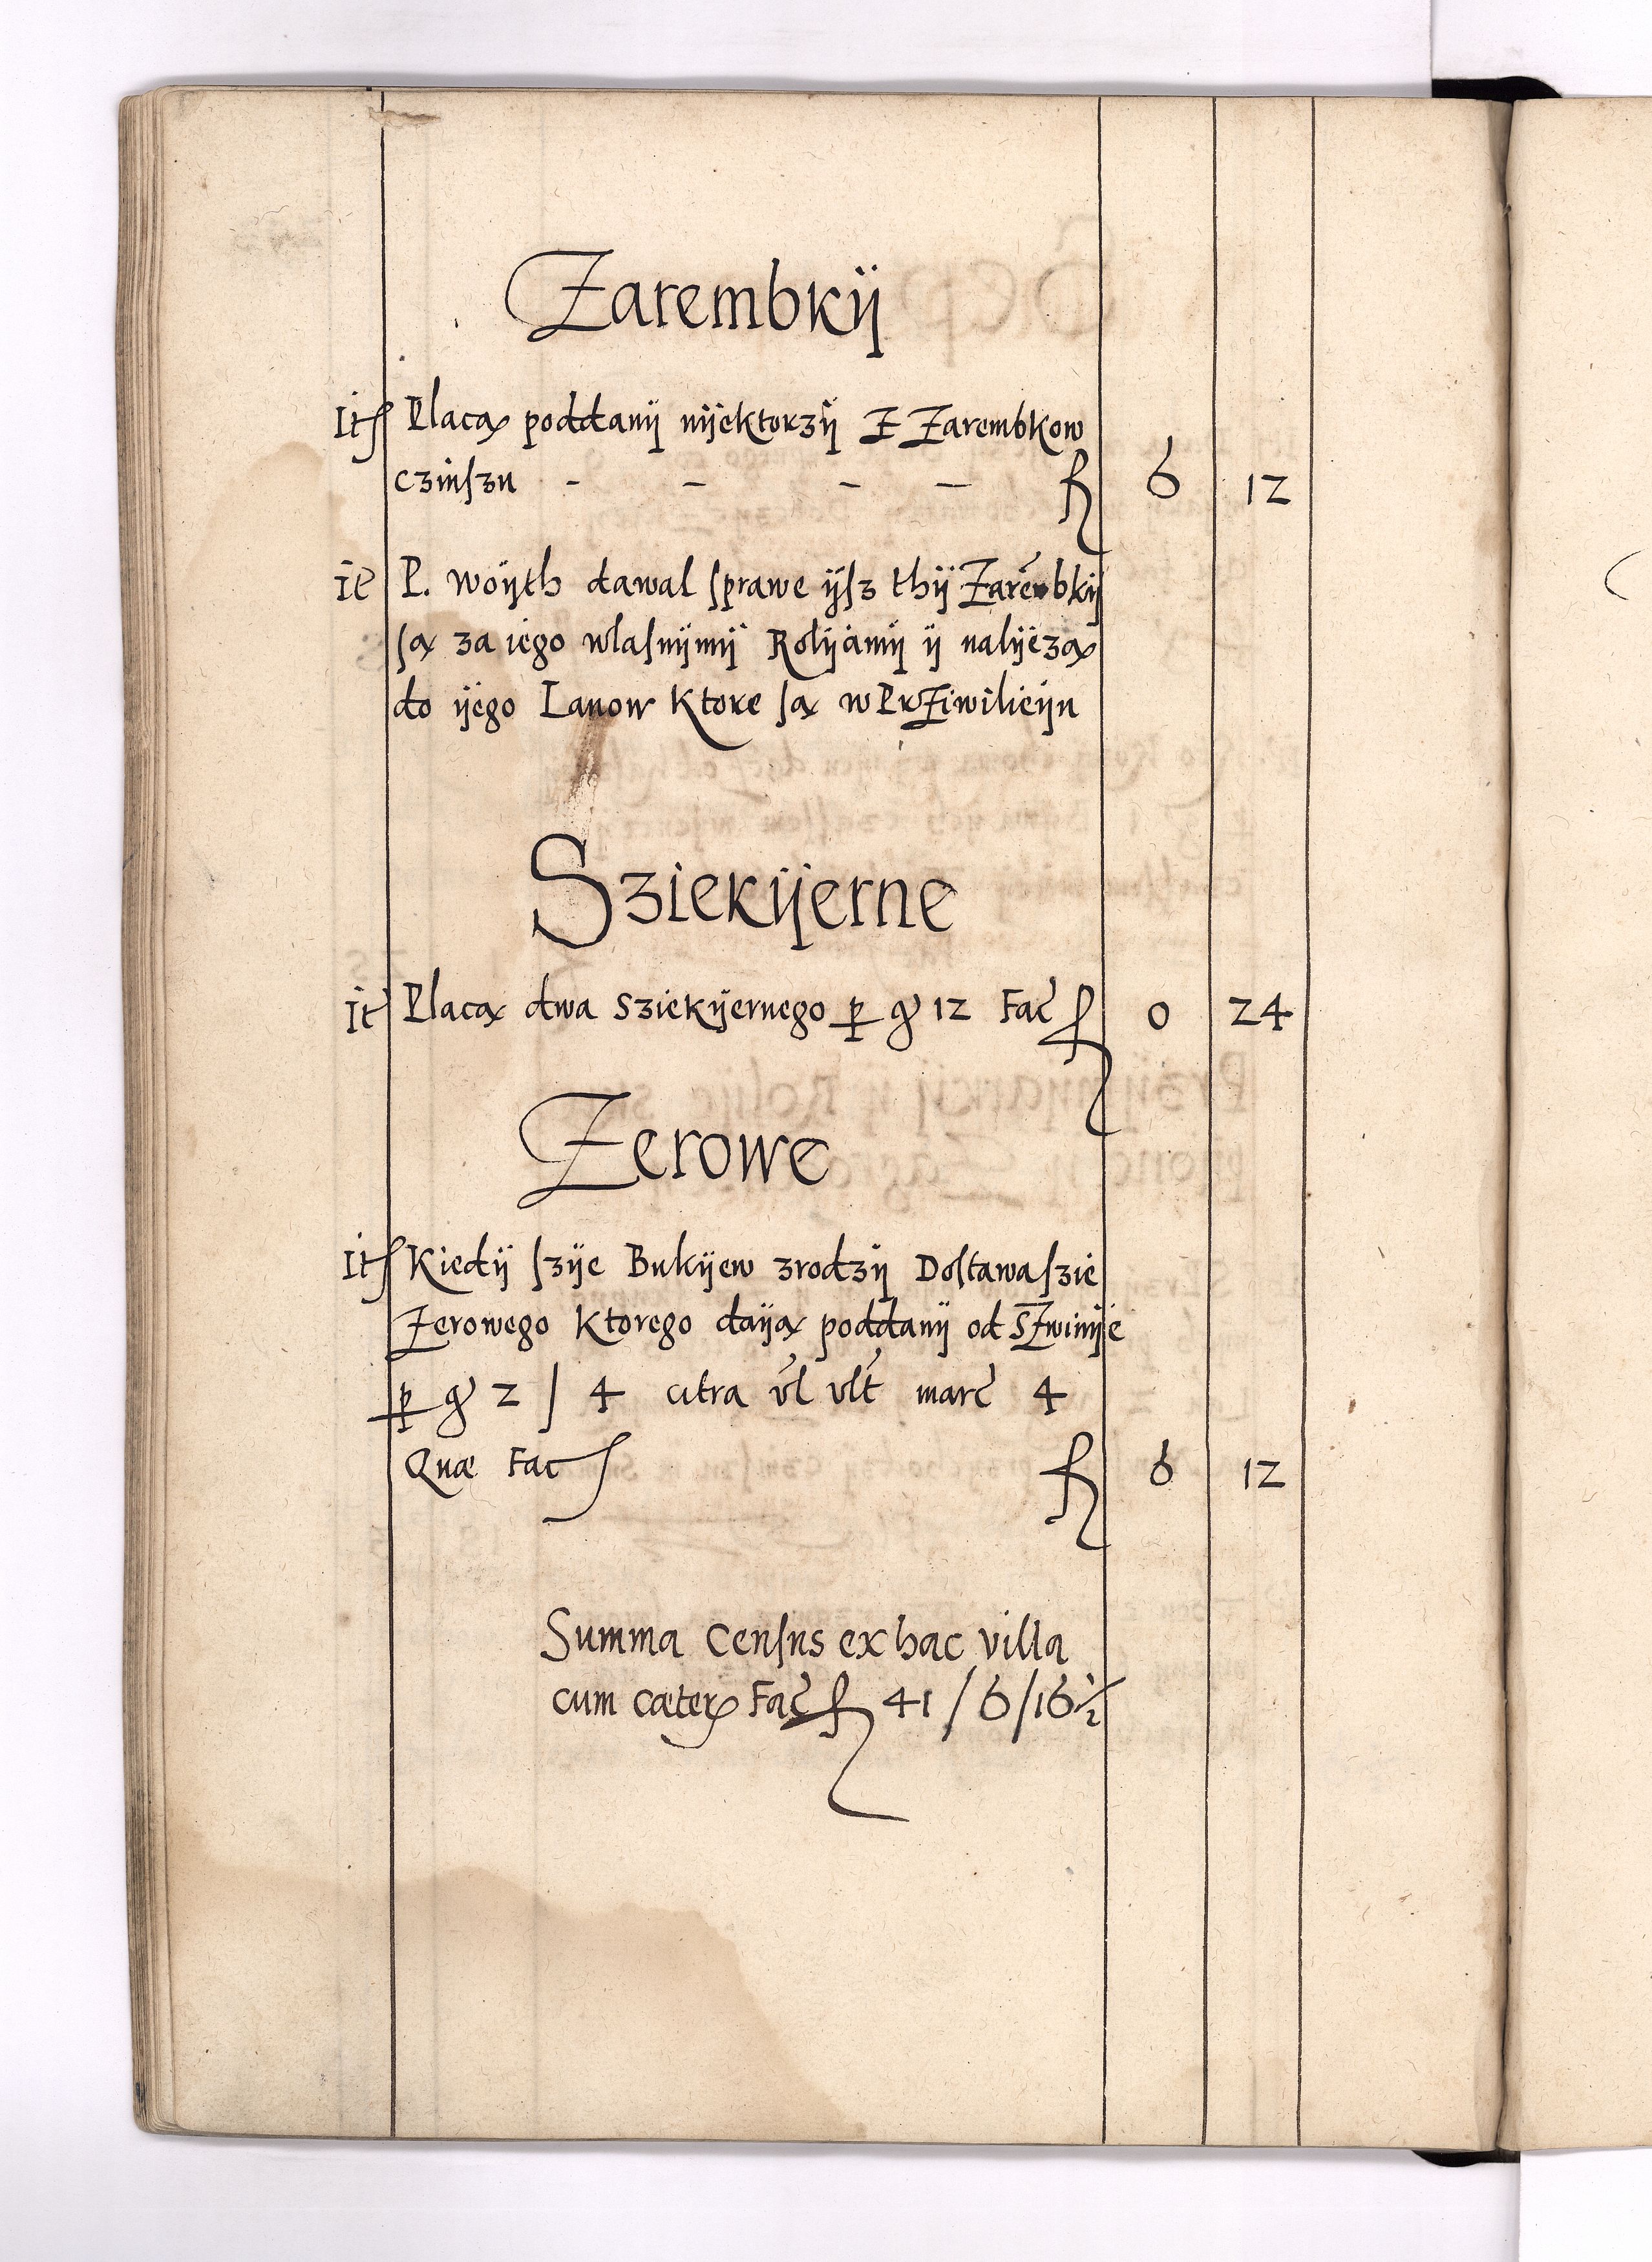 Zarembkÿ
It Placą poddanÿ nÿektorzÿ Z Zarembkow
czinſzu - - - - f 6 12
It P. woÿth dawal ſprawe ÿſz thÿ Zarēbkÿ
ſą za iego wlaſnÿmÿ Rolÿamÿ ÿ nalÿezą
do ÿego Lanow Ktore ſą w PrZiwilieÿu
Sziekÿerne
It Placą dwa Sziekÿernego p gr 12 Fac f 0 24
Zerowe
It Kiedÿ ſzÿe Bukÿew zrodzÿ Doſtawa ſzie
Zerowego Ktorego daÿą poddanÿ od SZwinÿe
p gr 2 / 4 citra vl vlt marc 4
Quæ Fac f 6 12
Summa Cenſus ex hac villa
cum cæter Fac f 41 / 6 / 16 ½